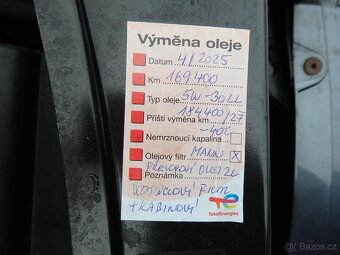 Výměna oleje
Datum 4/2025
Km 169400
Typ oleje 5W-30LL
Příští výměna km 184400/27
Nemrznoucí kapalina -40C
Olejový filtr MANN X
Poznámka PŘEVODOVÝ OLEJ 2L
VZDUCHOVÝ FILTR
+ KABINOVÝ
TotalEnergies
Bazoš.cz